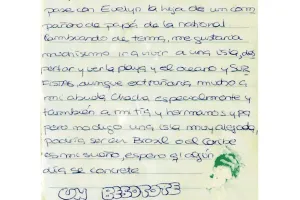 pase con Evelyn la hija de un com
pañero de papá de la national
Cambiando de tema, me gustaria
muchisimo ir a vivir a una isla, des
pertar y ver la playa y el oceano y sus
aunque extrañaria mucho a
mi abuela Chacha especialmente y
también a mi tia y hermanos y pa
pero no digo una isla muy alejada,
podria ser en Brasil o el Caribe
es mi sueño, espero q' algún
dia se concrete
UN BESOTOTE